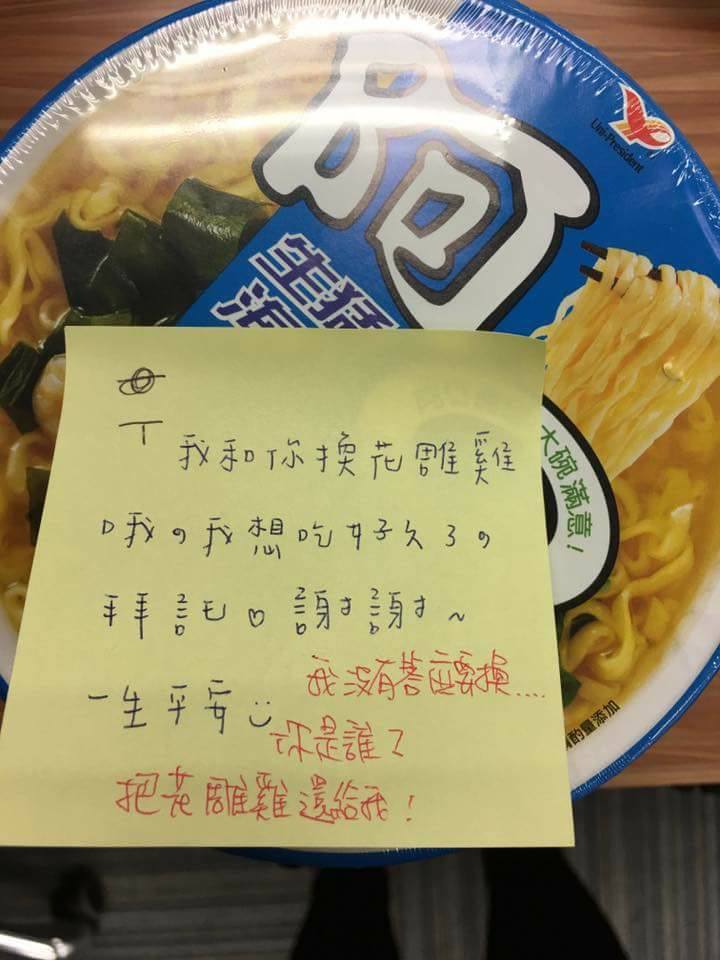 阿
Uni-President
生猛
海
大碗滿意!
我和你換花雕雞
哦。我想吃好久了。
拜託♡ 謝謝~
一生平安
我沒有答應要換....
你是誰?
把花雕雞還給我!
酌量添加